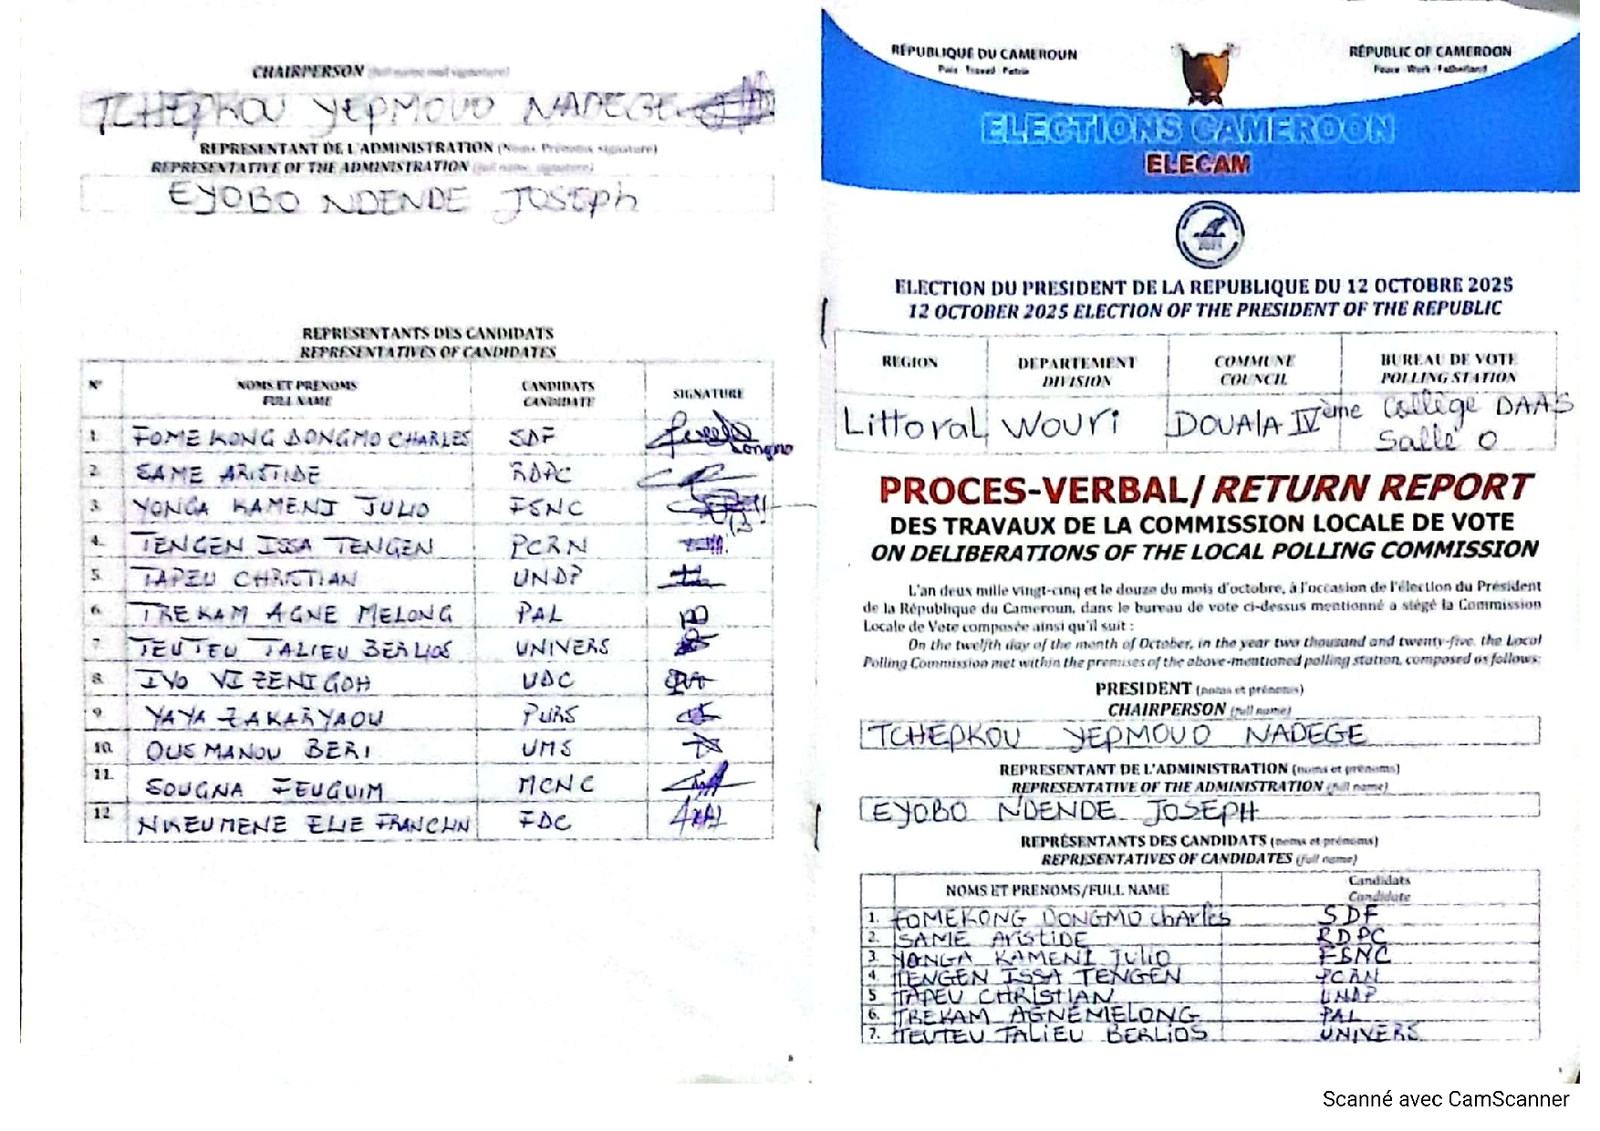 CHAIRPERSON (full name and signature)
TCHEPKOU YEPMOUO NADEGE
REPRESENTANT DE L'ADMINISTRATION (Noms, Prénoms signature)
REPRESENTATIVE OF THE ADMINISTRATION (full name, signature)
EYOBO NDENDE JOSEPH
REPRESENTANTS DES CANDIDATS
REPRESENTATIVES OF CANDIDATES
N° NOMS ET PRENOMS FULL NAME CANDIDATS CANDIDATE SIGNATURE
1. FOMEKONG DONGMO CHARLES SDF
2. SAME ARISTIDE RDPC
3. YONGA KAMENI JULIO FSNC
4. TENGEN ISSA TENGEN PCRN
5. TAPEU CHRISTIAN UNDP
6. TREKAM AGNE MELONG PAL
7. TEUTEU TALIEU BERLIOS UNIVERS
8. IVO VIZENIGOH UDC
9. YAYA ZAKARYAOU PURS
10. OUSMANOU BERI UMS
11. SOUGNA FEUGUIM MCNC
12. NKEUMENE ELIE FRANCLIN FDC
RÉPUBLIQUE DU CAMEROUN
Paix - Travail - Patrie
RÉPUBLIC OF CAMEROON
Peace - Work - Fatherland
ELECTIONS CAMEROON
ELECAM
ELECTION DU PRESIDENT DE LA REPUBLIQUE DU 12 OCTOBRE 2025
12 OCTOBER 2025 ELECTION OF THE PRESIDENT OF THE REPUBLIC
REGION DEPARTEMENT DIVISION COMMUNE COUNCIL BUREAU DE VOTE POLLING STATION
Littoral Wouri DOUALA IVème Collège DAAS Salle O
PROCES-VERBAL/ RETURN REPORT
DES TRAVAUX DE LA COMMISSION LOCALE DE VOTE
ON DELIBERATIONS OF THE LOCAL POLLING COMMISSION
L'an deux mille vingt-cinq et le douze du mois d'octobre, à l'occasion de l'élection du Président
de la République du Cameroun, dans le bureau de vote ci-dessus mentionné a siégé la Commission
Locale de Vote composée ainsi qu'il suit :
On the twelfth day of the month of October, in the year two thousand and twenty-five, the Local
Polling Commission met within the premises of the above-mentioned polling station, composed as follows:
PRESIDENT (noms et prénoms)
CHAIRPERSON (full name)
TCHEPKOU YEPMOUO NADEGE
REPRESENTANT DE L'ADMINISTRATION (noms et prénoms)
REPRESENTATIVE OF THE ADMINISTRATION (full name)
EYOBO NDENDE JOSEPH
REPRÉSENTANTS DES CANDIDATS (noms et prénoms)
REPRESENTATIVES OF CANDIDATES (full name)
NOMS ET PRENOMS/FULL NAME Candidats Candidate
1. FOMEKONG DONGMO charles SDF
2. SAME ARISTIDE RDPC
3. YONGA KAMENI Julio FSNC
4. TENGEN ISSA TENGEN PCRN
5 TAPEU CHRISTIAN UNDP
6. TREKAM AGNEMELONG PAL
7. TEUTEU TALIEU BERLIOS UNIVERS
Scanné avec CamScanner